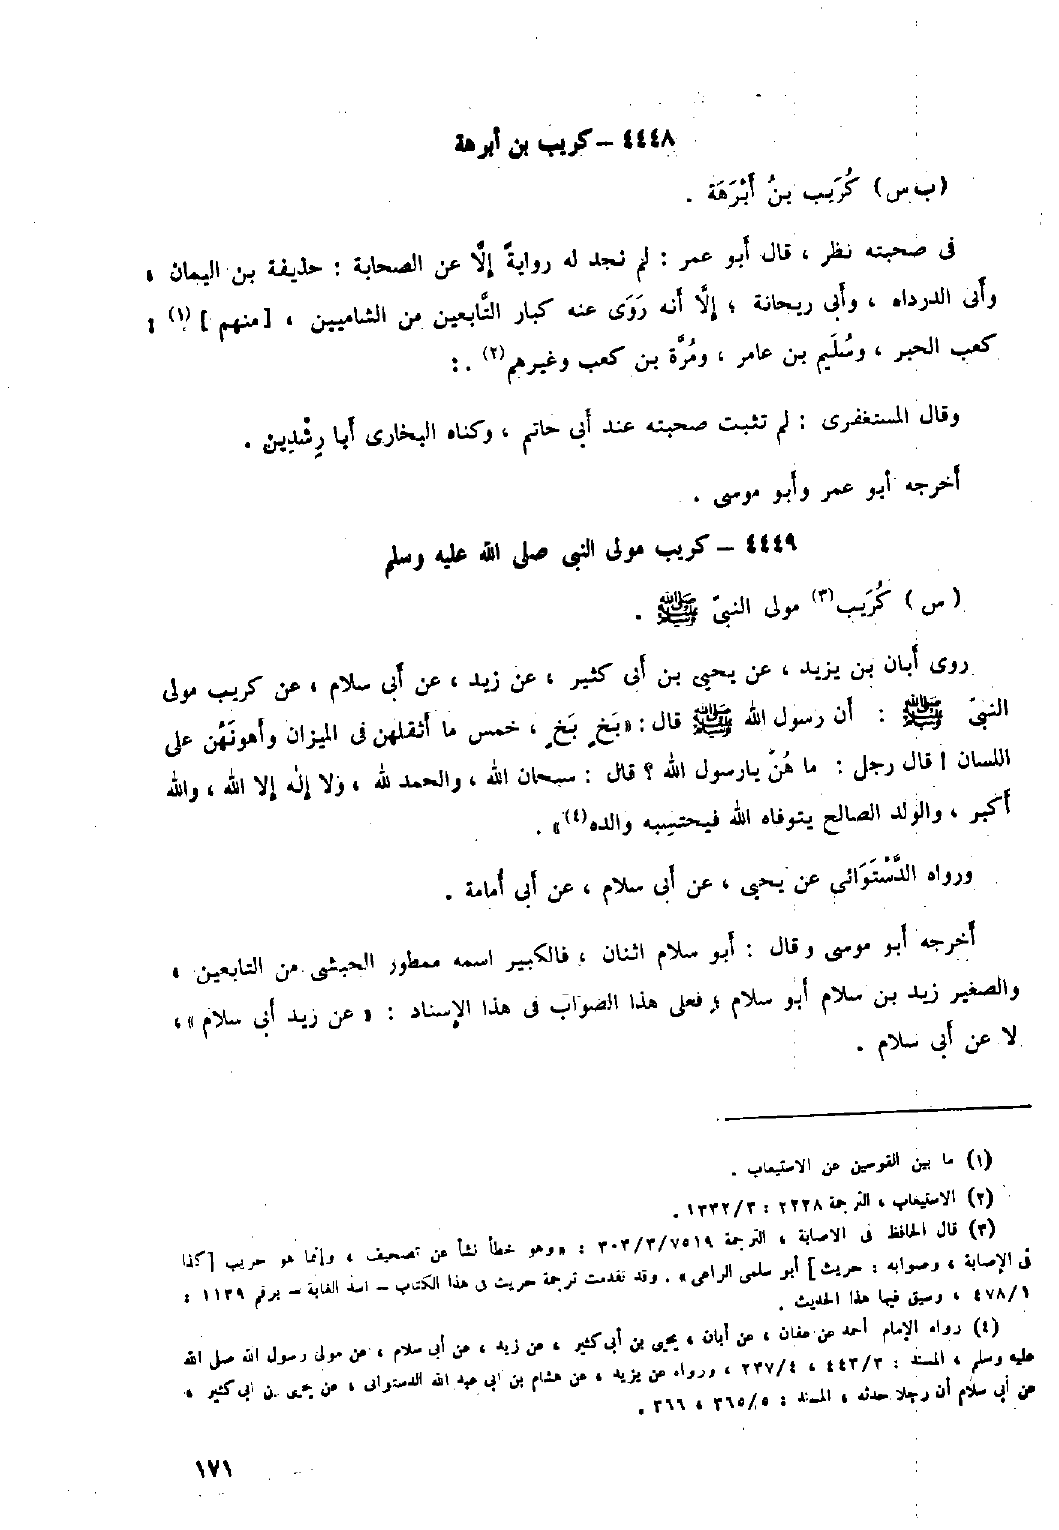 ٤٤٤٨ – كريب بن أبرهة
(ب س) كُرَيب بنُ أَبْرَهَة .
فى صحبته نظر ، قال أبو عمر : لم نجد له روايةً إلَّا عن الصحابة : حذيفة بن اليمان ،
وأبى الدرداء ، وأبى ريحانة ؛ إلَّا أنه رَوَى عنه كبار التَّابعين من الشاميين ، [منهم ](١) :
كعب الحبر ، وسُلَيم بن عامر ، ومُرَّة بن كعب وغيرهم(٢) . :
وقال المستغفرى : لم تثبت صحبته عند أبى حاتم ، وكناه البخارى أبا رِشْدِين .
أخرجه أبو عمر وأبو موسى .
٤٤٤٩ – كريب مولى النبى صلى الله عليه وسلم
( س ) كُرَيب(٣) مولى النبىّ ﷺ .
روى أبان بن يزيد ، عن يحيى بن أبى كثير ، عن زيد ، عن أبى سلام ، عن كريب مولى
النبىّ ﷺ : أن رسول الله ﷺ قال : «بَخٍ بَخٍ ، خمس ما أثقلهن فى الميزان وأهونَهُن على
اللسان ! قال رجل : ما هُنّ يارسول الله ؟ قال : سبحان الله ، والحمد لله ، ولا إله إلا الله ، والله
أكبر ، والولد الصالح يتوفاه الله فيحتسِبه والده(٤)» .
ورواه الدَّسْتَوَائى عن يحيى ، عن أبى سلام ، عن أبى أُمامة .
أخرجه أبو موسى وقال : أبو سلام اثنان ، فالكبير اسمه ممطور الحبشى من التابعين ،
والصغير زيد بن سلام أبو سلام ؛ فعلى هذا الصواب فى هذا الإسناد : « عن زيد أبى سلام » ،
لا عن أبى سلام .
(١) ما بين القوسين عن الاستيعاب .
(٢) الاستيعاب ، الترجمة ٢٢٢٨ : ١٣٣٢/٣ .
(٣) قال الحافظ فى الاصابة ، الترجمة ٣٠٣/٣/٧٥١٩ : «وهو خطأ نشأ عن تصحيف ، وإنما هو حريب [كذا
فى الإصابة ، وصوابه : حريث] أبو سلمى الراعى» . وقد تقدمت ترجمة حريث فى هذا الكتاب – اسد الغابة – برقم ١١٣٩ :
٤٧٨/١ ، وسيق فيها هذا الحديث .
(٤) رواه الإمام أحمد عن عفان ، عن أبان ، يحيى بن أبى كثير ، عن زيد ، عن أبى سلام ، عن مولى رسول الله صلى الله
عليه وسلم ، المسند : ٤٤٣/٣ ، ٢٣٧/٤ ، ورواه عن يزيد ، عن هشام بن ابى عبد الله الدستوائى ، عن يحيى بن ابى كثير ،
عن أبى سلام أن رجلا حدثه ، المسند : ٣٦٥/٥ ، ٣٦٦ .
١٧١